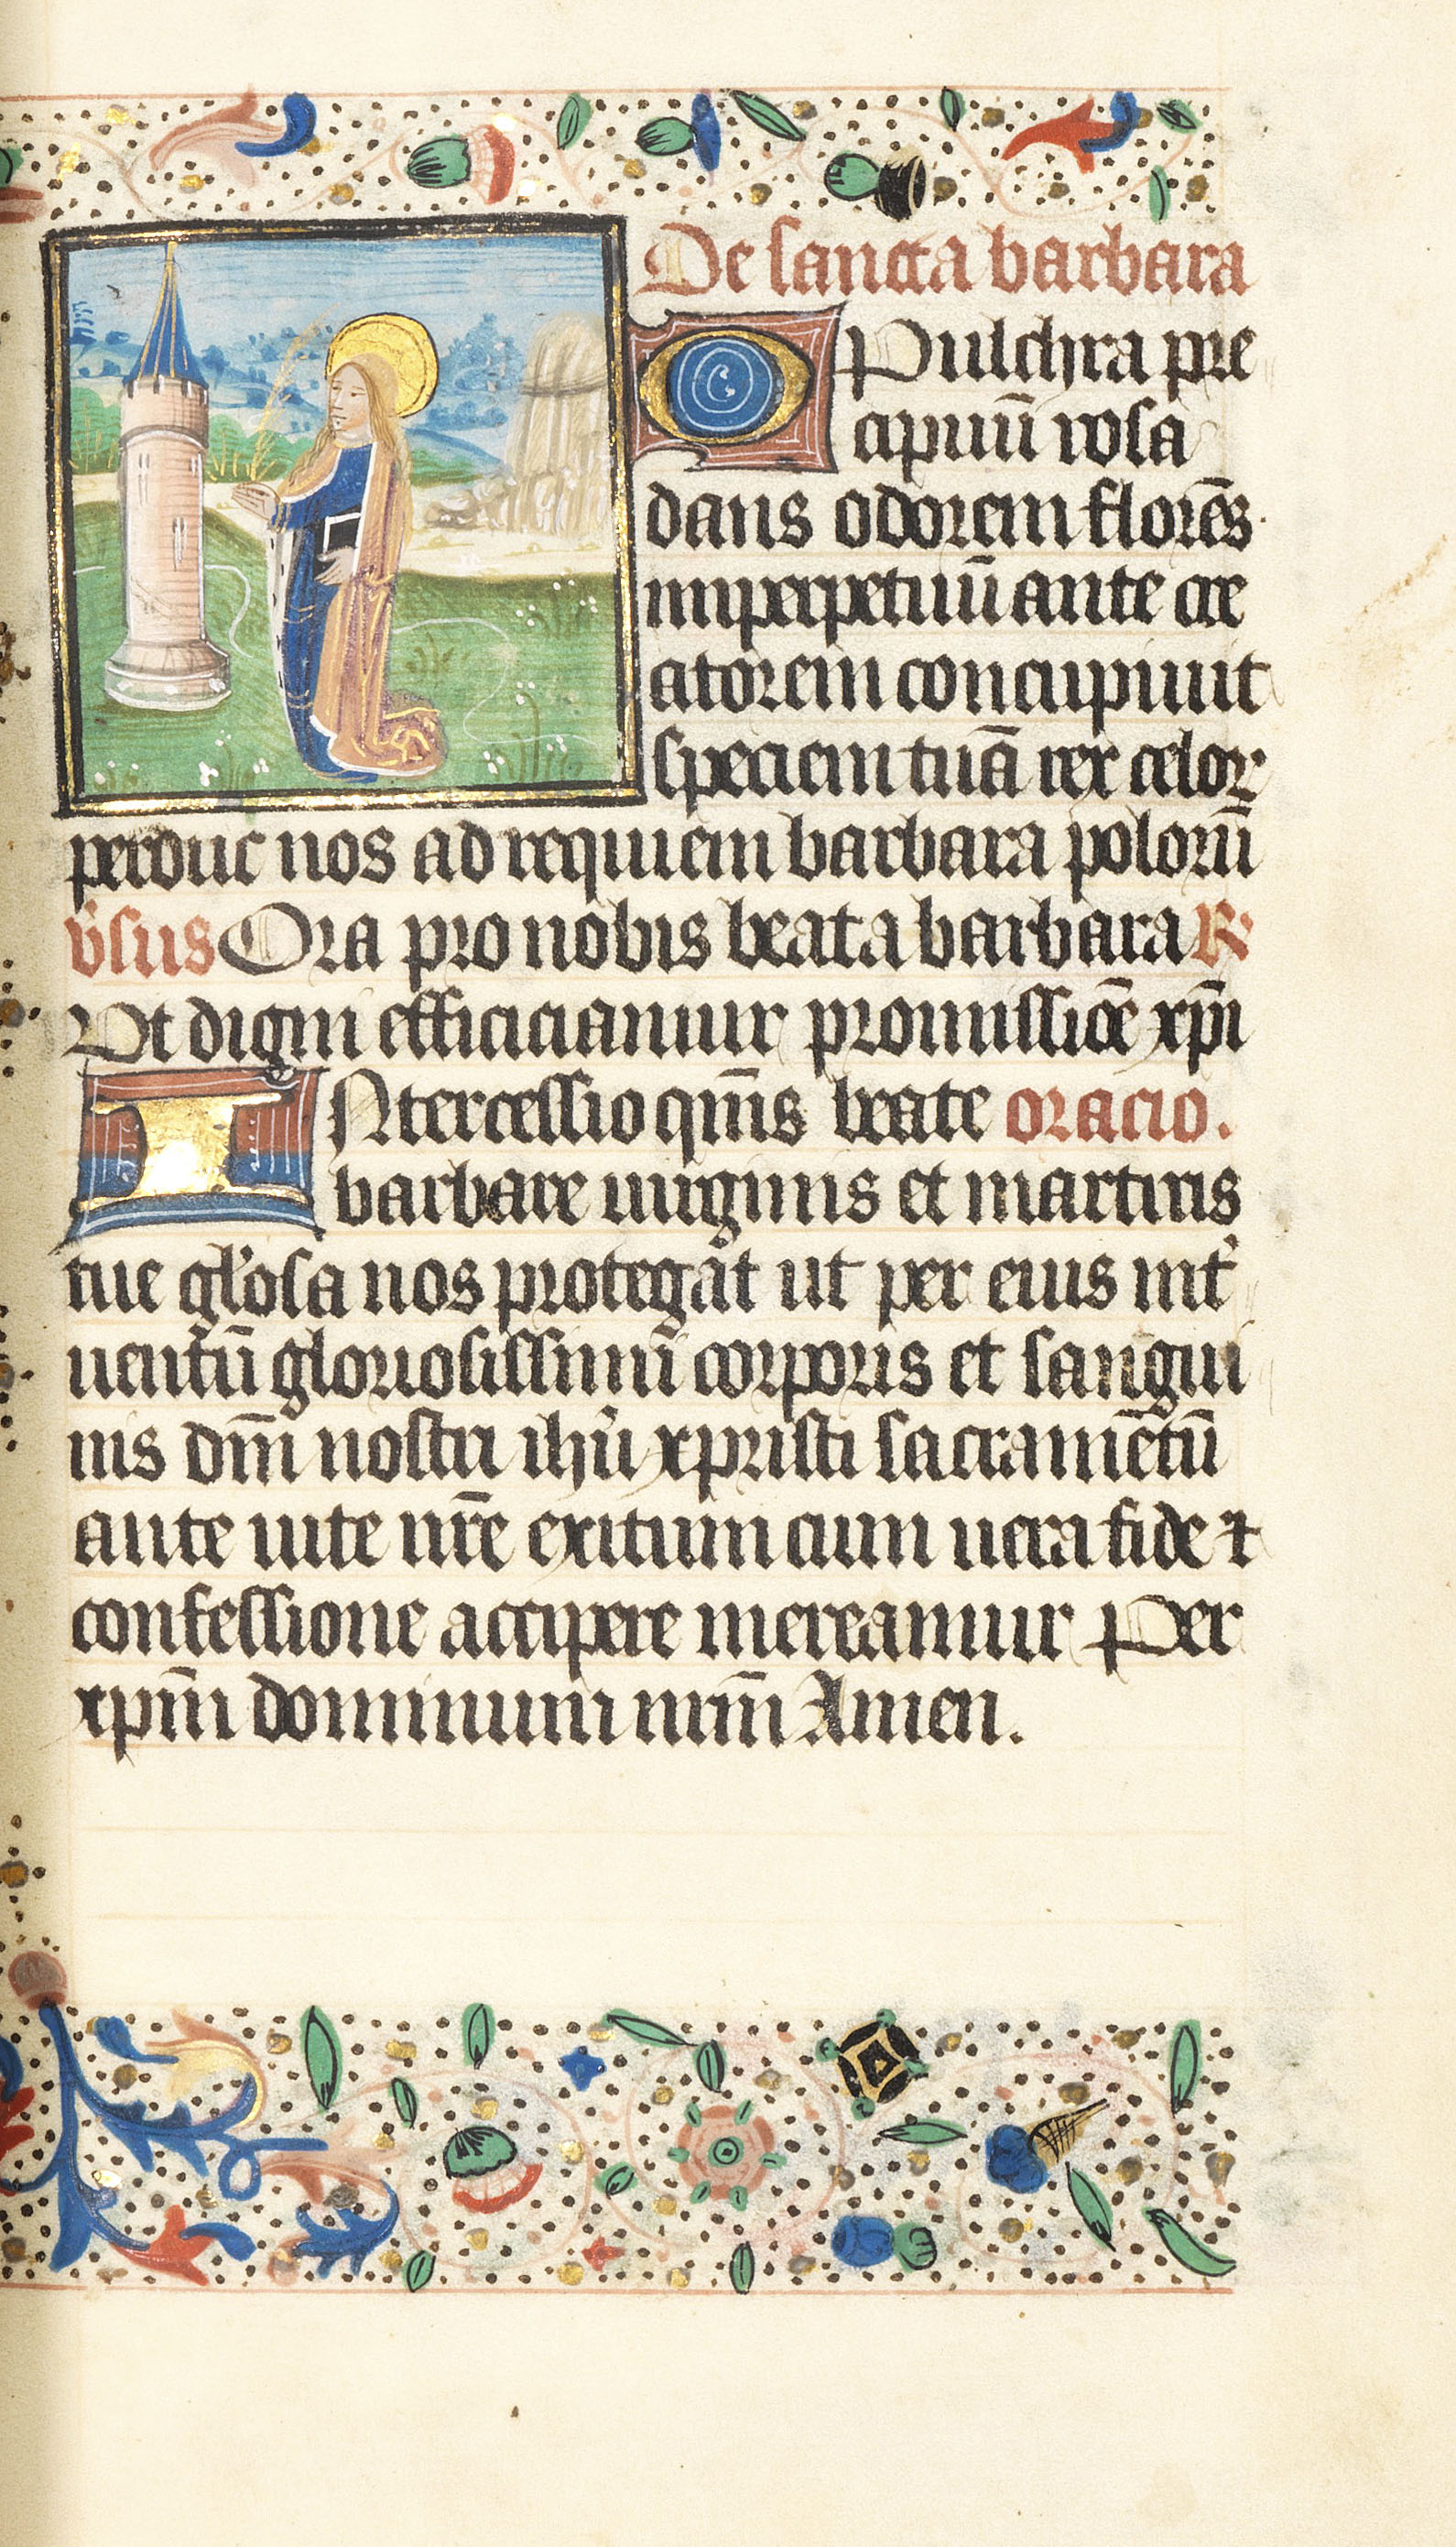 De sancta barbara
O Pulchra pre
cipuū rosa
dans odorem florēs
imperpetuū ante cre
atorem concupiuit
speciem tuā rex celoꝝ
perduc nos ad requiem barbara polorū
v̓sus Ora pro nobis beata barbara R̓
Ut digni efficiciamur promissiōē xp̄i
INtercessio qm̄s beate oracio.
barbare uirginis et martiris
tue gl̓osa nos protegat ut per eius int̓
uentū gloriosissimū corporis et sangui
nis dm̄i nostri ihū xpristi sacramētū
ante uite nr̄e exitum cum uera fide ⁊
confessione accipere mereamur Per
xpm̄ dominum nrm̄ Amen.